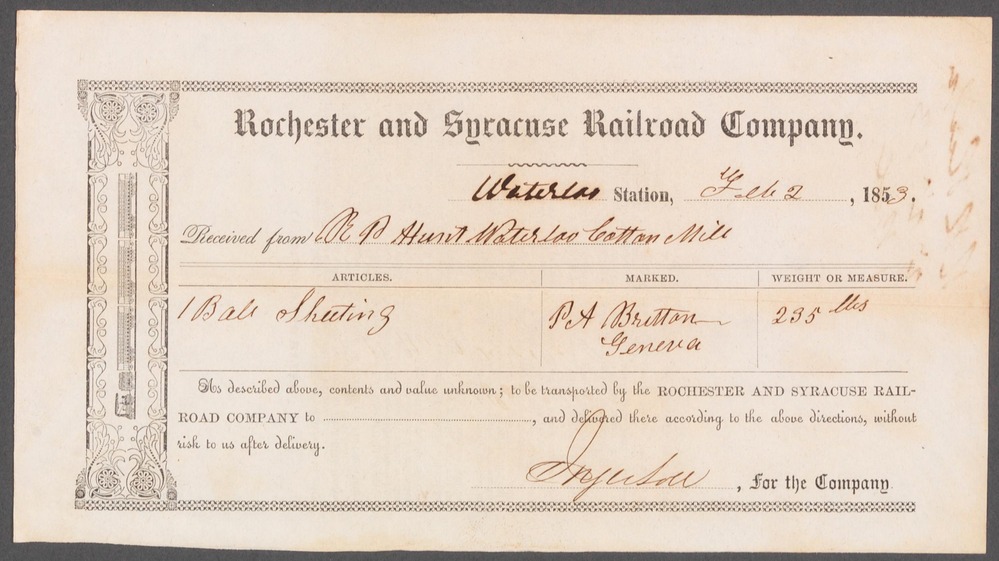 Rochester and Syracuse Railroad Company.
Waterloo Station, Feb 2, 1853.
Received from R P Hunt Waterloo Cotton Mill
ARTICLES. MARKED. WEIGHT OR MEASURE.
1 Bale Sheeting P A Britton 235 lbs
Geneva
As described above, contents and value unknown; to be transported by the ROCHESTER AND SYRACUSE RAIL-
ROAD COMPANY to , and delivered there according to the above directions, without
risk to us after delivery.
Ingersoll, For the Company